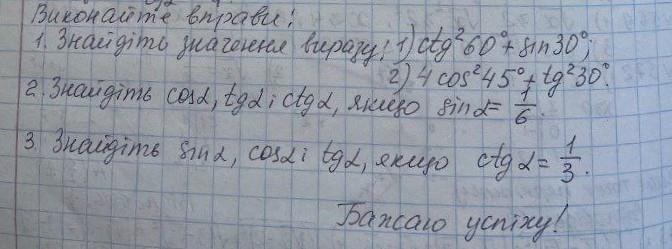 Виконайте вправи:
1. Знайдіть значення виразу: 1) ctg²60°+sin30°;
2) 4cos²45°+tg²30°.
2. Знайдіть cosα, tgα і ctgα, якщо sinα=1/6.
3. Знайдіть sinα, cosα і tgα, якщо ctgα=1/3.
Бажаю успіху!